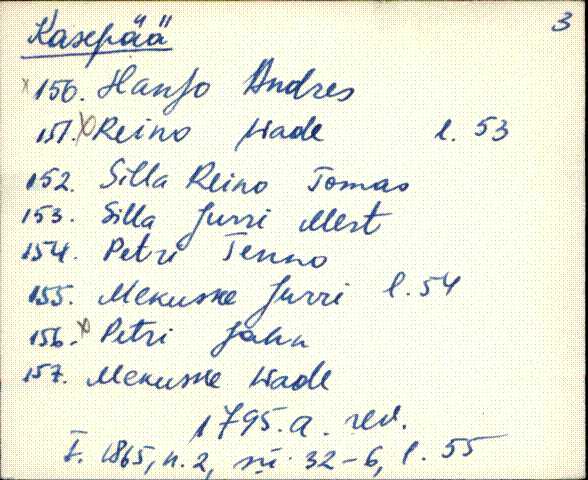 Kasepää 3
150. Hanso Andres
151. Reino Made l. 53
152. Silla Reino Tomas
153. Silla Jurri Mert
154. Petri Tenno
155. Mekuske Jurri l. 54
156. Petri Jahn
157. Mekuske Made
1795. a. rev.
F. 1865, n. 2, sü. 32-6, l. 55